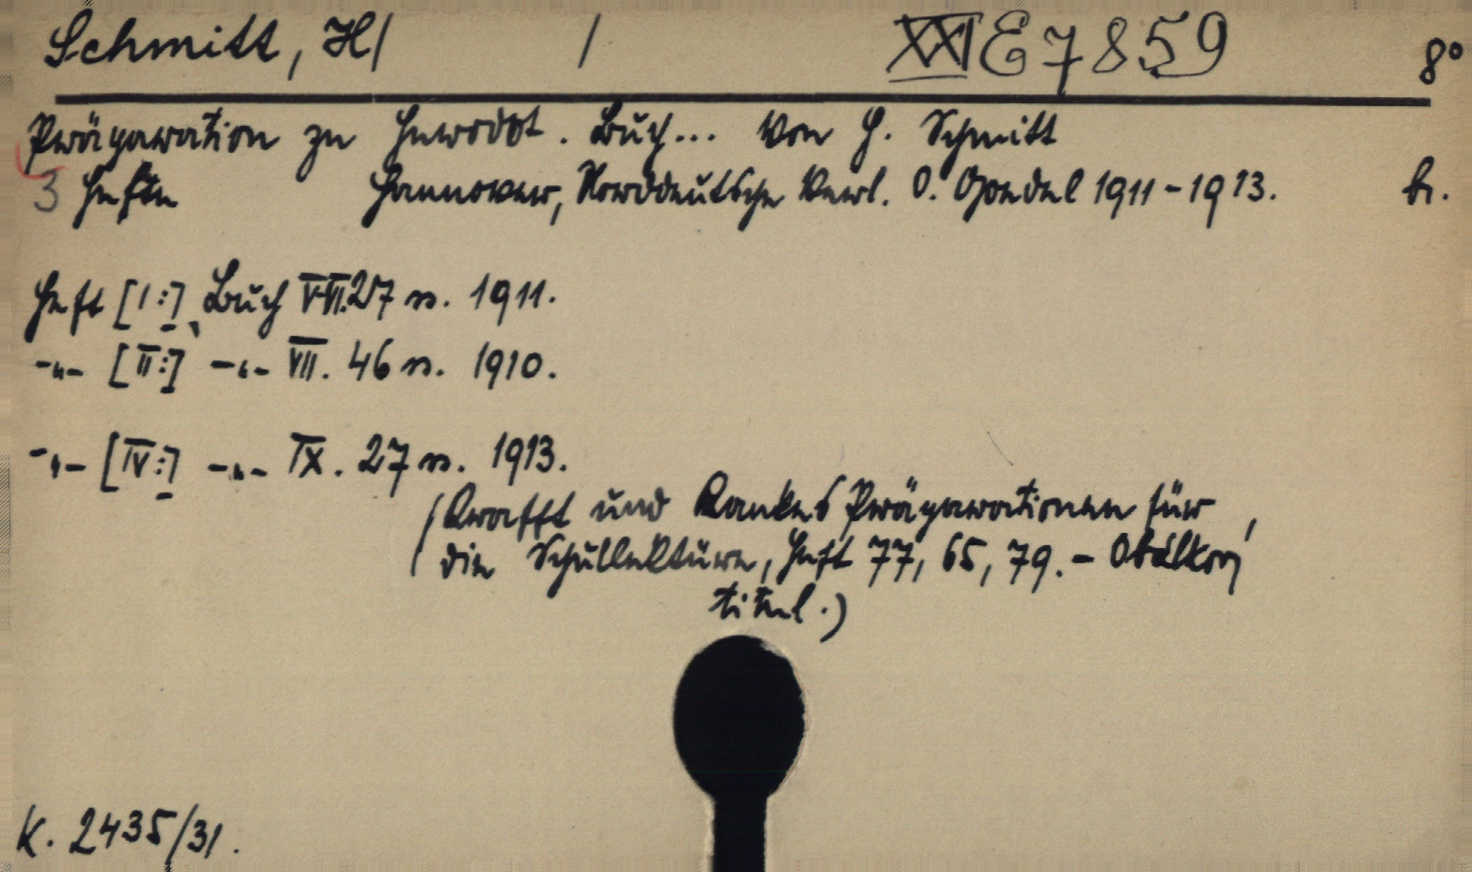 Schmitt, H/ / XXI E 7859 8°
Präparation zu Herodot. Buch... Von H. Schmitt
3 Hefte Hannover, Norddeutsche Verl. O. Goedel 1911-1913. br.
Heft [I:] Buch V-VI. 27 s. 1911.
-„- [II:] -„- VII. 46 s. 1910.
-„- [IV:] -„- IX. 27 s. 1913.
(Krafft und Rankes Präparationen für
die Schullektüre, Heft 77, 65, 79. - Obálkový
titul.)
K. 2435/31.